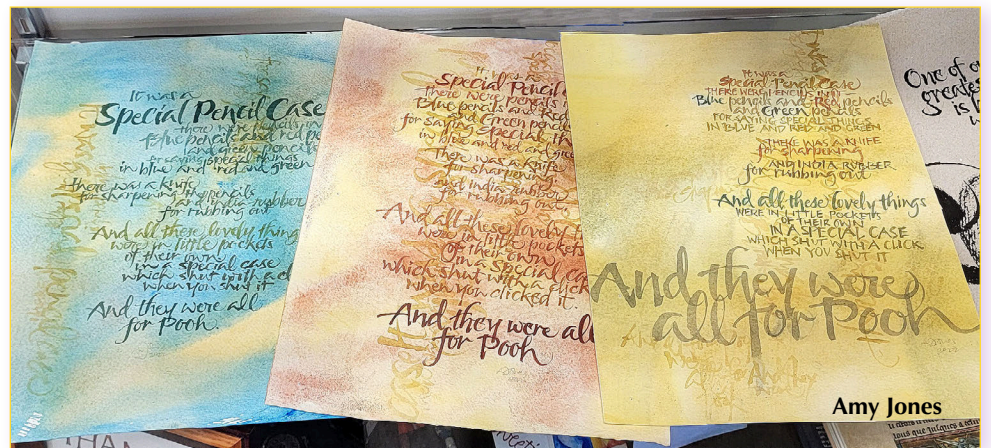 It was a
Special Pencil Case
there were pencils
Blue pencils and Red pe
and Green pencils
for saying special things
in blue and red and green
there was a knife
for sharpening the pencils
and india rubber
for rubbing out
And all these lovely thing
were in little pockets
of their own
in a special case
which shut with a cl
when you shut it
And they were all
for Pooh.
It was a
Special Pencil C
there were pencils i
Blue pencils and Red
and Green penci
for saying Special thi
in blue and red and gree
There was a knife
for sharpening
and india rubber
for rubbing out
And all these lovely t
were in little pockets
of their own
in a Special cas
which shut with a click
when you clicked it.
And they were all
for Pooh
It was a
Special Pencil Case
THERE WERE PENCILS IN IT
Blue pencils and Red pencils
and Green pencils
FOR SAYING SPECIAL THINGS
IN BLUE AND RED AND GREEN
THERE WAS A KNIFE
for sharpening
AND INDIA RUBBER
for rubbing out
And all these lovely things
WERE IN LITTLE POCKETS
OF THEIR OWN
IN A SPECIAL CASE
WHICH SHUT WITH A CLICK
WHEN YOU SHUT IT
And they were
all for Pooh
One of o
greates
is l
Amy Jones